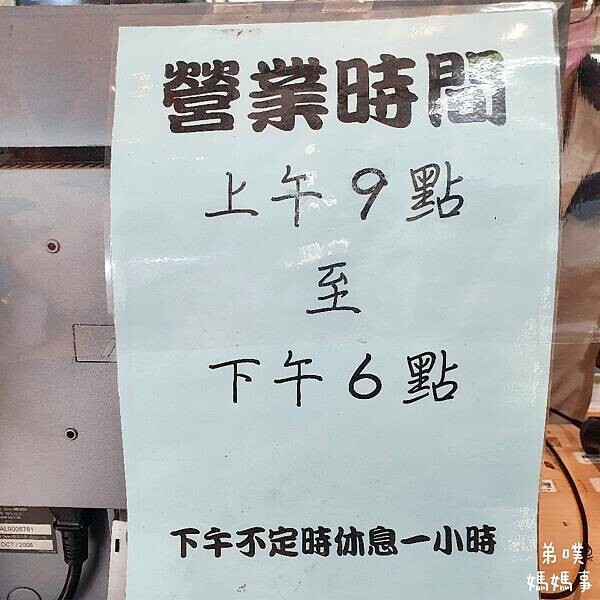 營業時間
上午9點
至
下午6點
下午不定時休息一小時
AL9006761
OCT / 2006
弟噗
媽媽事